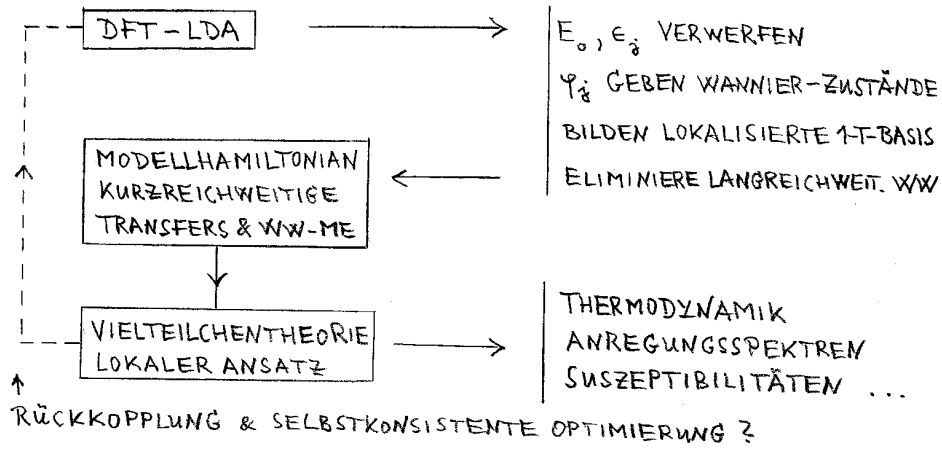 DFT-LDA
E₀, ϵⱼ VERWERFEN
φⱼ GEBEN WANNIER-ZUSTÄNDE
BILDEN LOKALISIERTE 1-T-BASIS
ELIMINIERE LANGREICHWEIT. WW
MODELLHAMILTONIAN
KURZREICHWEITIGE
TRANSFERS & WW-ME
VIELTEILCHENTHEORIE
LOKALER ANSATZ
THERMODYNAMIK
ANREGUNGSSPEKTREN
SUSZEPTIBILITÄTEN ...
RÜCKKOPPLUNG & SELBSTKONSISTENTE OPTIMIERUNG ?